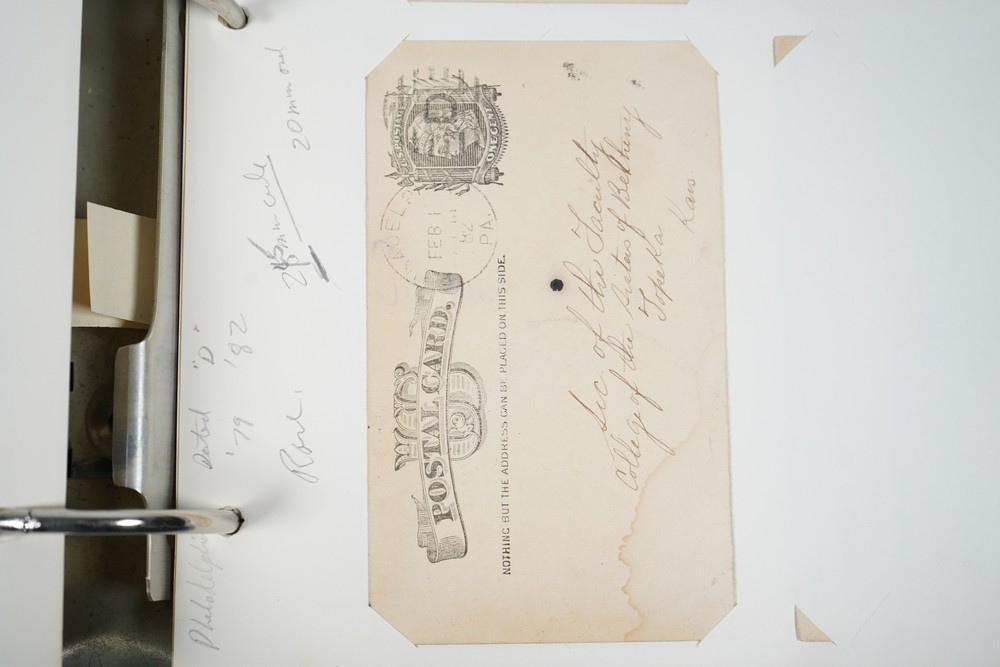 Philadelphia Dated "D"
'79 '82
Rare.
26mm circle
20mm oval
U.S. POSTAGE
ONE CENT
D
ADEL
FEB 1
82
PA.
POSTAL CARD,
NOTHING BUT THE ADDRESS CAN BE PLACED ON THIS SIDE.
Sec of the Faculty
College of the Sisters of Bethany
Topeka
Kans.